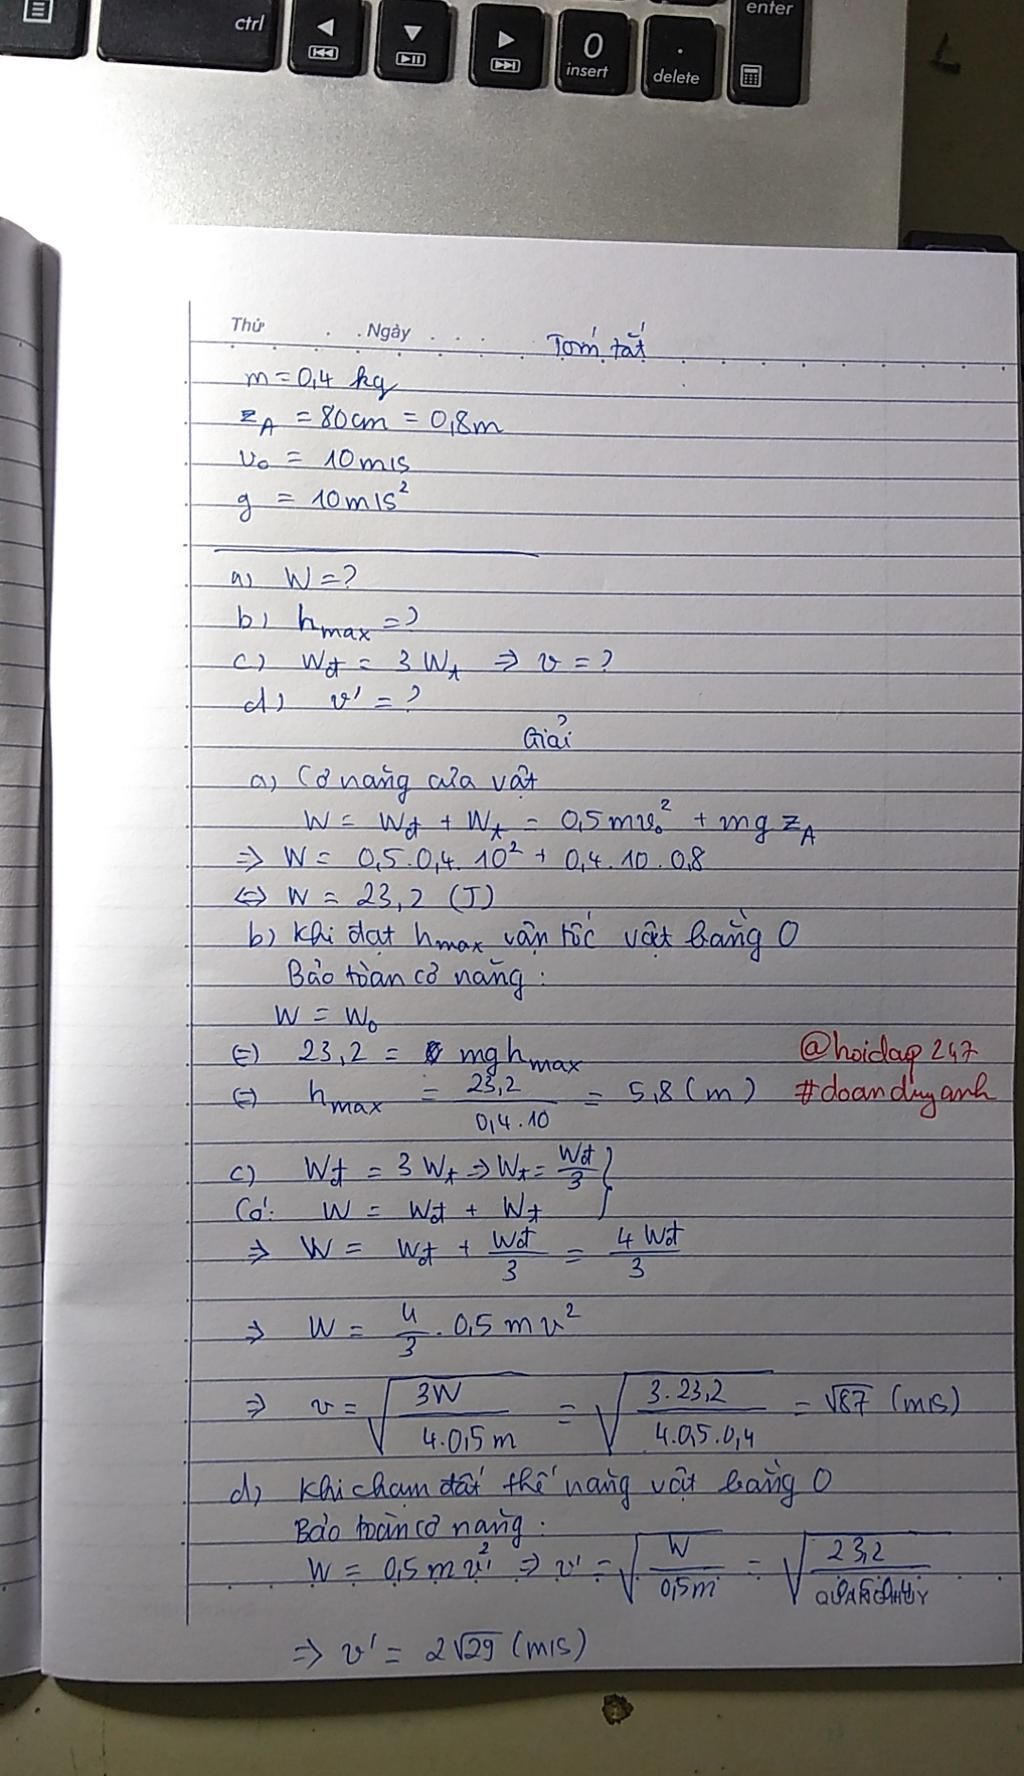 ctrl
0
insert
.
delete
enter
Thứ . . Ngày . . . .
Tóm tắt
m = 0,4 kg
z_A = 80cm = 0,8m
v₀ = 10m/s
g = 10m/s²
a) W = ?
b) h_max = ?
c) Wđ = 3 Wt ⇒ v = ?
d) v' = ?
Giải
a) Cơ năng của vật
W = Wđ + Wt = 0,5mv₀² + mg z_A
⇒ W = 0,5.0,4.10² + 0,4.10.0,8
⇔ W = 23,2 (J)
b) Khi đạt h_max vận tốc vật bằng 0
Bảo toàn cơ năng :
W = W₀
⇔ 23,2 = mgh_max
@hoidap247
⇔ h_max = 23,2 / 0,4.10 = 5,8 (m)
#doanduyanh
c) Wđ = 3 Wt ⇒ Wt = Wđ/3 }
Có: W = Wđ + Wt
⇒ W = Wđ + Wđ/3 = 4Wđ/3
⇒ W = 4/3 . 0,5 mv²
⇒ v = √(3W / 4.0,5m) = √(3.23,2 / 4.0,5.0,4) = √87 (m/s)
d) Khi chạm đất thế năng vật bằng 0
Bảo toàn cơ năng :
W = 0,5mv'² ⇒ v' = √(W / 0,5m) = √(23,2 /
⇒ v' = 2√29 (m/s)